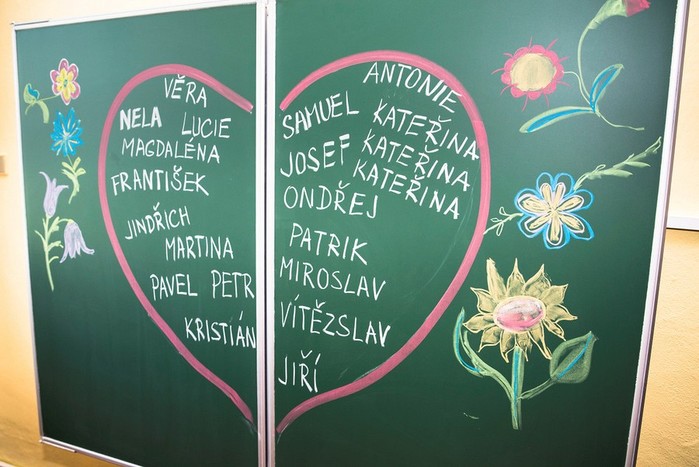 VĚRA
NELA LUCIE
MAGDALÉNA
FRANTIŠEK
JINDŘICH
MARTINA
PAVEL PETR
KRISTIÁN
ANTONIE
SAMUEL KATEŘINA
JOSEF KATEŘINA
KATEŘINA
ONDŘEJ
PATRIK
MIROSLAV
VÍTĚZSLAV
JIŘÍ